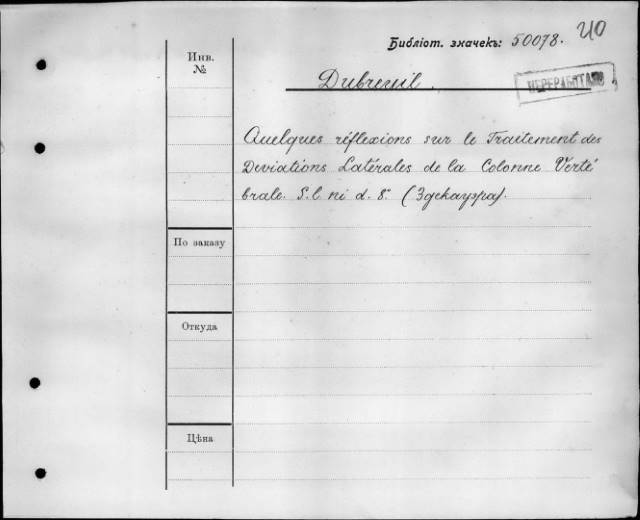 Библіот. значекъ: 50078.
Инв.
№
Dubreuil.
ПЕРЕРАБОТАНО
Quelques réflexions sur le Traitement des
Deviations Latérales de la Colonne Verté
brale. S. l ni d. 8°. (Здекауэра).
По заказу
Откуда
Цѣна